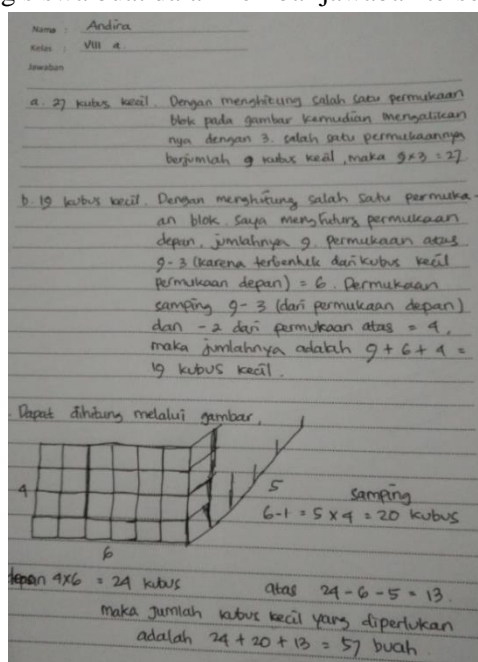 Nama : Andira
Kelas : VIII a
Jawaban
a. 27 kubus kecil. Dengan menghitung salah satu permukaan
blok pada gambar kemudian mengalikan
nya dengan 3. salah satu permukaannya
berjumlah 9 kubus kecil, maka 9x3 = 27
b. 19 kubus kecil. Dengan menghitung salah satu permuka-
an blok. saya menghitung permukaan
depan, jumlahnya 9. permukaan atas
9-3 (karena terbentuk dari kubus kecil
permukaan depan) = 6. Permukaan
samping 9-3 (dari permukaan depan)
dan -2 dari permukaan atas = 4,
maka jumlahnya adalah 9+6+4 =
19 kubus kecil.
Dapat dihitung melalui gambar,
4
5
samping
6-1 = 5 x 4 = 20 kubus
6
depan 4x6 = 24 kubus
atas 24-6-5 = 13.
maka jumlah kubus kecil yang diperlukan
adalah 24+20+13 = 57 buah.